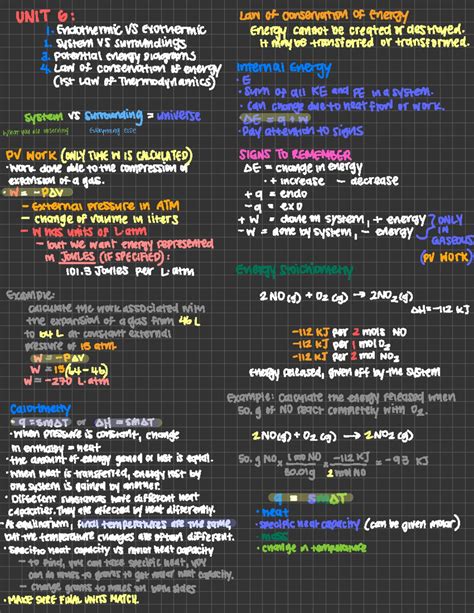 UNIT 6:
1. Endothermic VS exothermic
2. System VS surroundings
3. Potential energy Diagrams
4. Law of conservation of energy
(1st Law of Thermodynamics)
System VS Surrounding = universe
What you are observing
everything else
PV WORK (ONLY TIME W IS CALCULATED)
• Work done due to the compression of
expansion of a gas.
W = -PΔV
- External pressure in ATM
- change of volume in liters
- W has units of L·atm
- but we want energy represented
in JOULES (IF SPECIFIED):
101.3 Joules per L·atm
Example:
calculate the work associated with
the expansion of a gas from 46 L
to 64 L at constant external
pressure of 15 atm.
W = -PΔV
W = 15(64-46)
W = -270 L·atm
Calorimetry
• q = smΔT or ΔH = smΔT
• When pressure is constant, change
in enthalpy = heat.
• the amount of energy gained or lost is equal.
• when heat is transferred, energy lost by
one system is gained by another.
• Different substances have different heat
capacities. They are affected by heat differently.
• At equilibrium, final temperatures are the same
but the temperature changes are often different.
• Specific heat capacity vs molar heat capacity
- to find, you can take specific heat,
to get molar heat capacity
- change grams to moles on both sides
• MAKE SURE FINAL UNITS MATCH.
Law of Conservation of Energy
Energy cannot be created or destroyed.
It may be transferred or transformed.
Internal Energy
• E
• Sum of all KE and PE in a system.
• Can change due to heat flow or work.
ΔE = q + w
• Pay attention to signs
SIGNS TO REMEMBER
ΔE = change in energy
+ increase - decrease
+ q = endo
- q = exo
+ W = done on system, + energy
- W = done by system, - energy
? ONLY
IN
GASEOUS
(PV WORK)
Energy Stoichiometry
2 NO (g) + O2 (g) → 2NO2 (g)
ΔH = -112 KJ
-112 KJ per 2 mols NO
-112 KJ per 1 mol O2
-112 KJ per 2 mol NO2
Energy released, given off by the system
Example: Calculate the energy released when
50. g of NO react completely with O2.
2NO (g) + O2 (g) → 2NO2 (g)
50. g NO x 1 mol NO x -112 KJ = -93 KJ
30.01g 2 mol NO
q = smΔT
• heat
• specific heat capacity (can be given molar)
• mass
• change in temperature